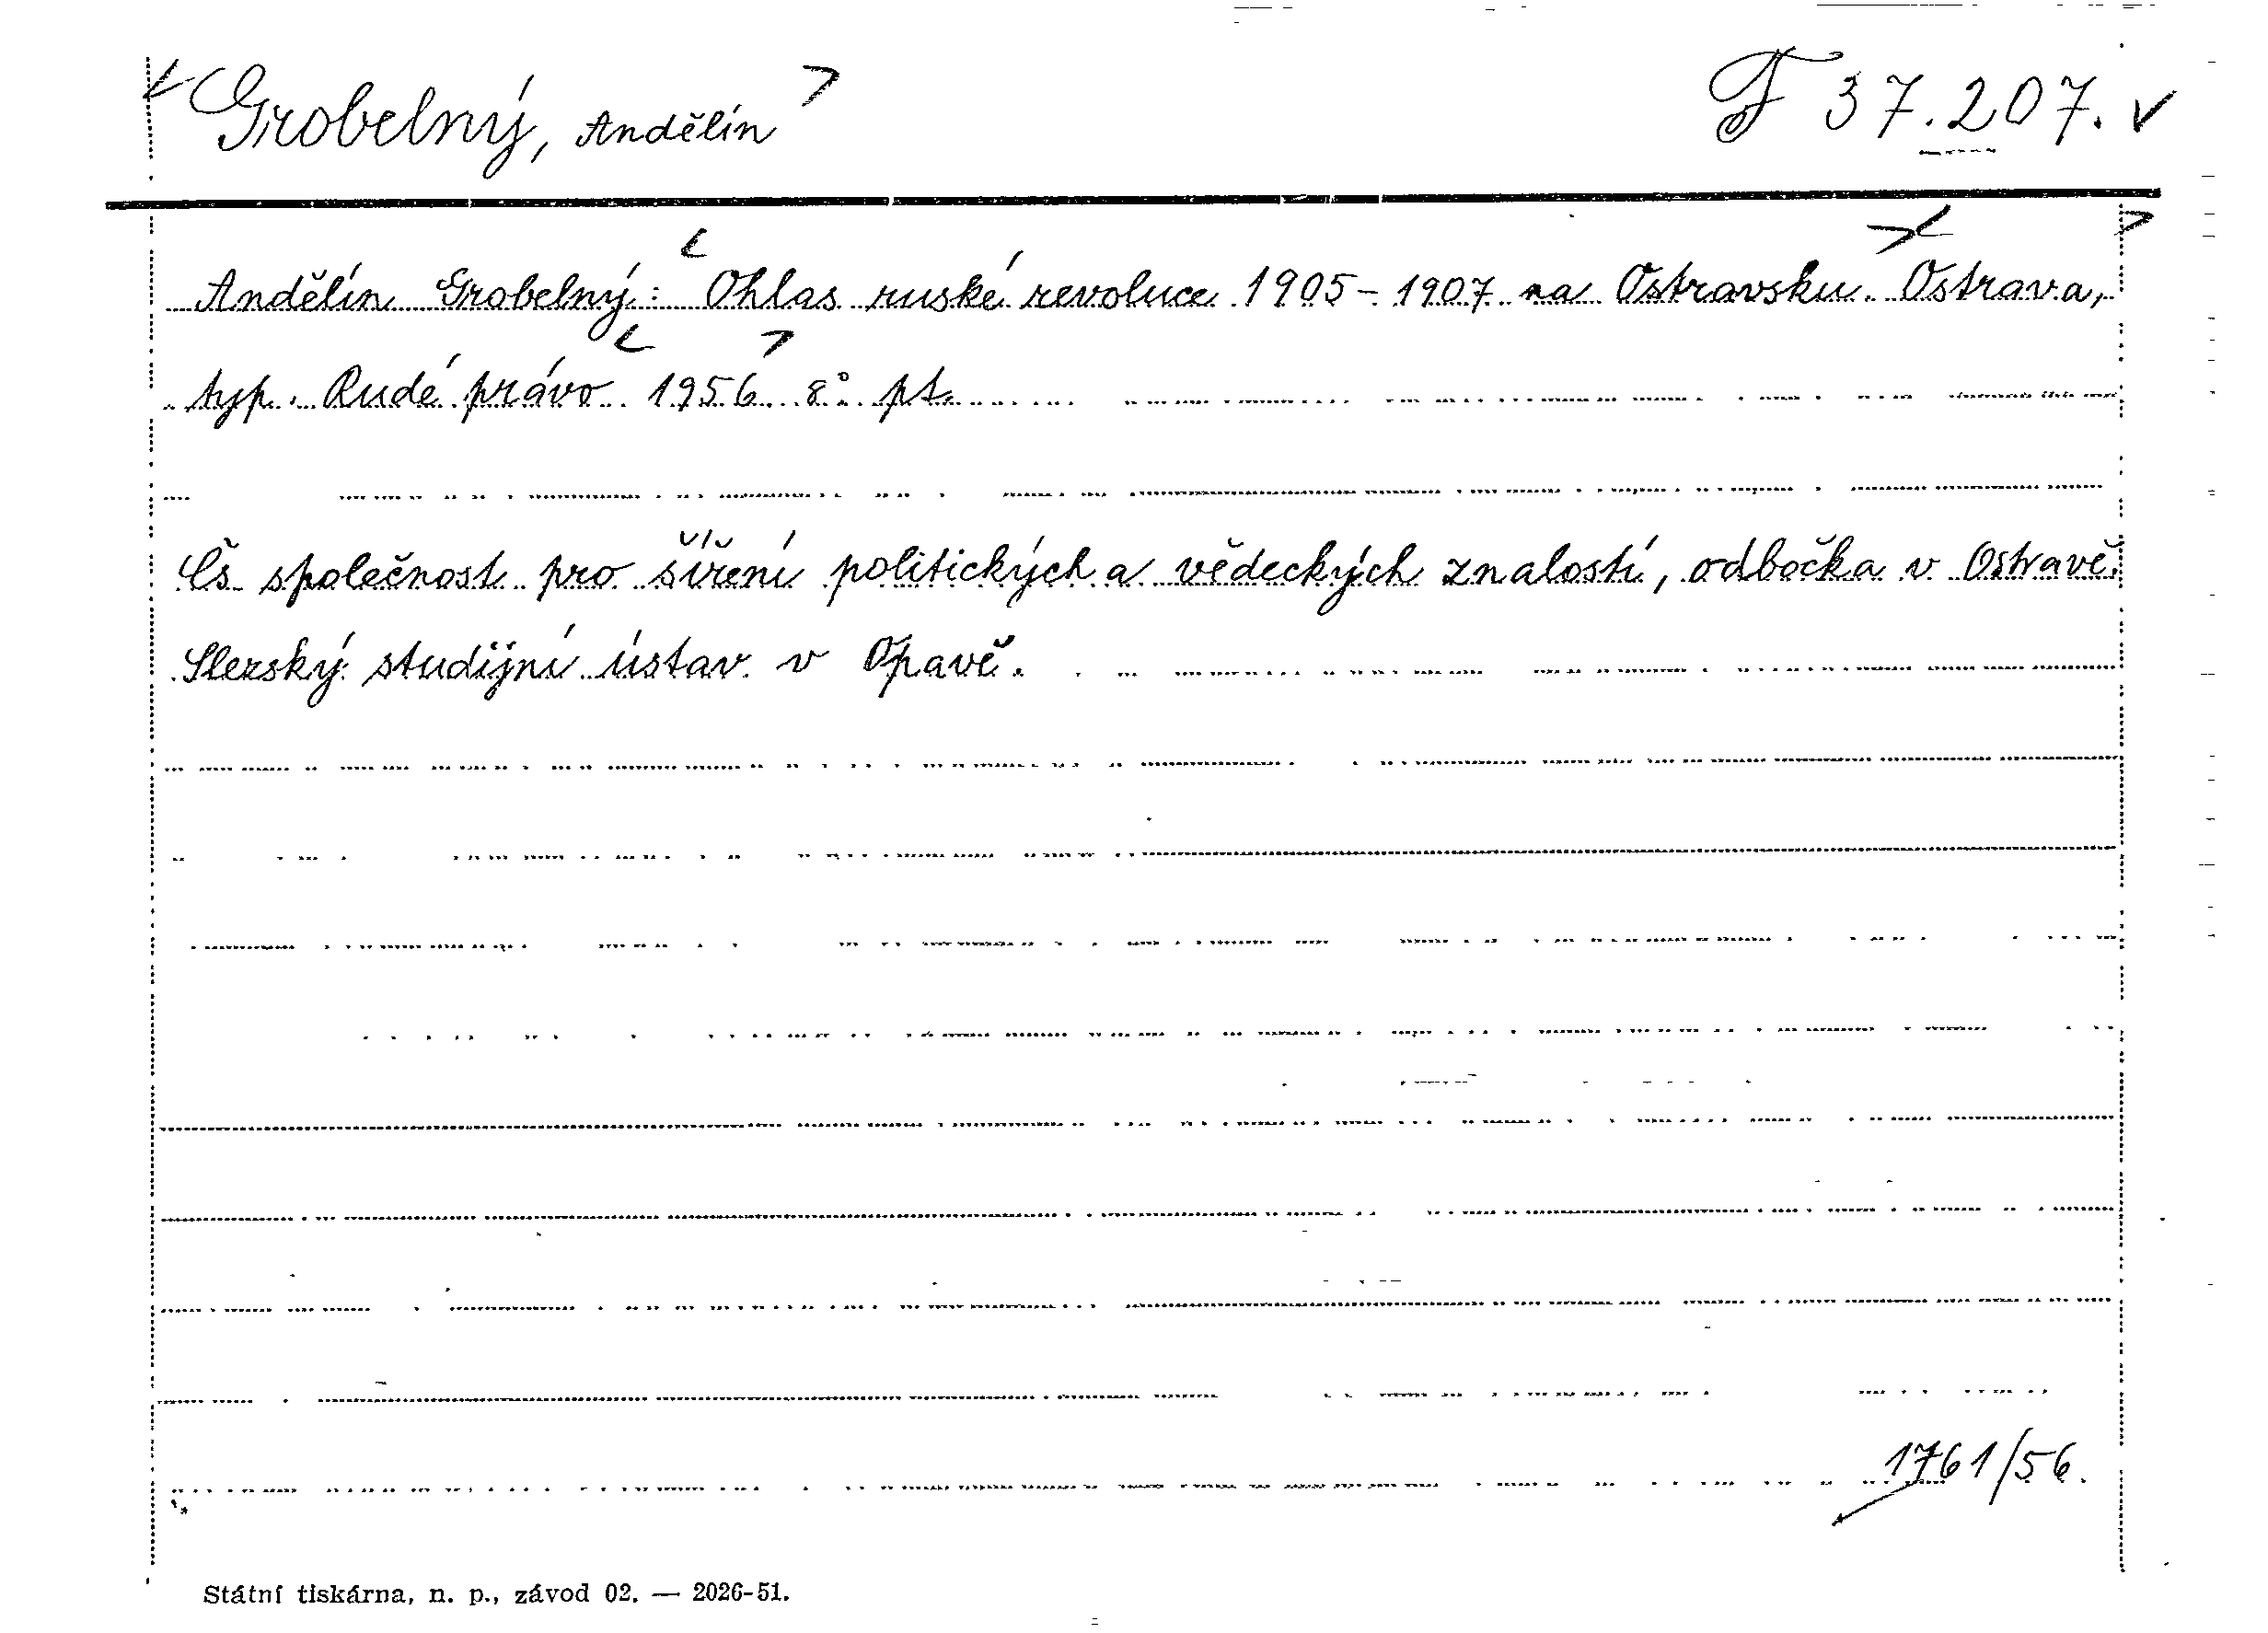 Grobelný, Andělín
F 37.207.
Andělín Grobelný: Ohlas ruské revoluce 1905-1907 na Ostravsku. Ostrava,
typ. Rudé právo 1956 8° pt.
Čs. společnost pro šíření politických a vědeckých znalostí, odbočka v Ostravě.
Slezský studijní ústav v Opavě.
1761/56.
Státní tiskárna, n. p., závod 02. — 2026-51.